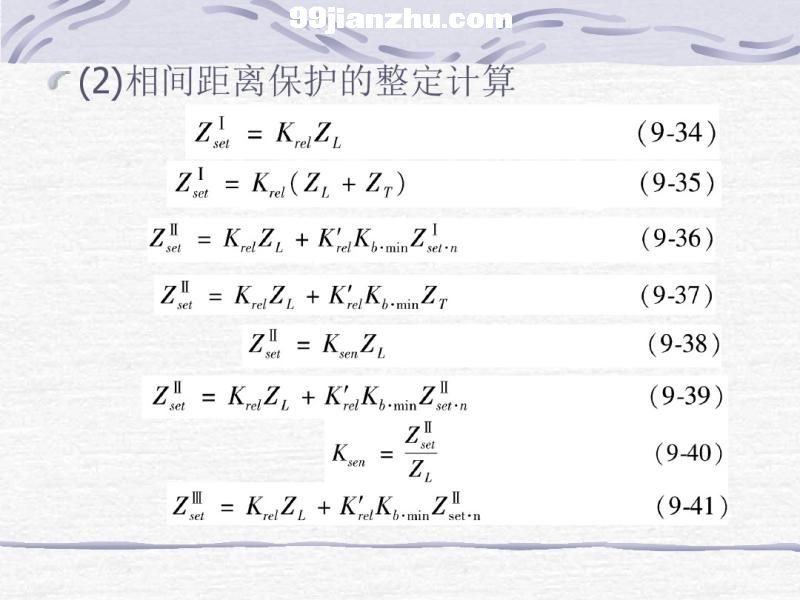 99jianzhu.com
(2)相间距离保护的整定计算
Z_{set}^{Ⅰ} = K_{rel}Z_{L} (9-34)
Z_{set}^{Ⅰ} = K_{rel}(Z_{L} + Z_{T}) (9-35)
Z_{set}^{Ⅱ} = K_{rel}Z_{L} + K'_{rel}K_{b·min}Z_{set·n}^{Ⅰ} (9-36)
Z_{set}^{Ⅱ} = K_{rel}Z_{L} + K'_{rel}K_{b·min}Z_{T} (9-37)
Z_{set}^{Ⅱ} = K_{sen}Z_{L} (9-38)
Z_{set}^{Ⅱ} = K_{rel}Z_{L} + K'_{rel}K_{b·min}Z_{set·n}^{Ⅱ} (9-39)
K_{sen} = Z_{set}^{Ⅱ} / Z_{L} (9-40)
Z_{set}^{Ⅲ} = K_{rel}Z_{L} + K'_{rel}K_{b·min}Z_{set·n}^{Ⅱ} (9-41)